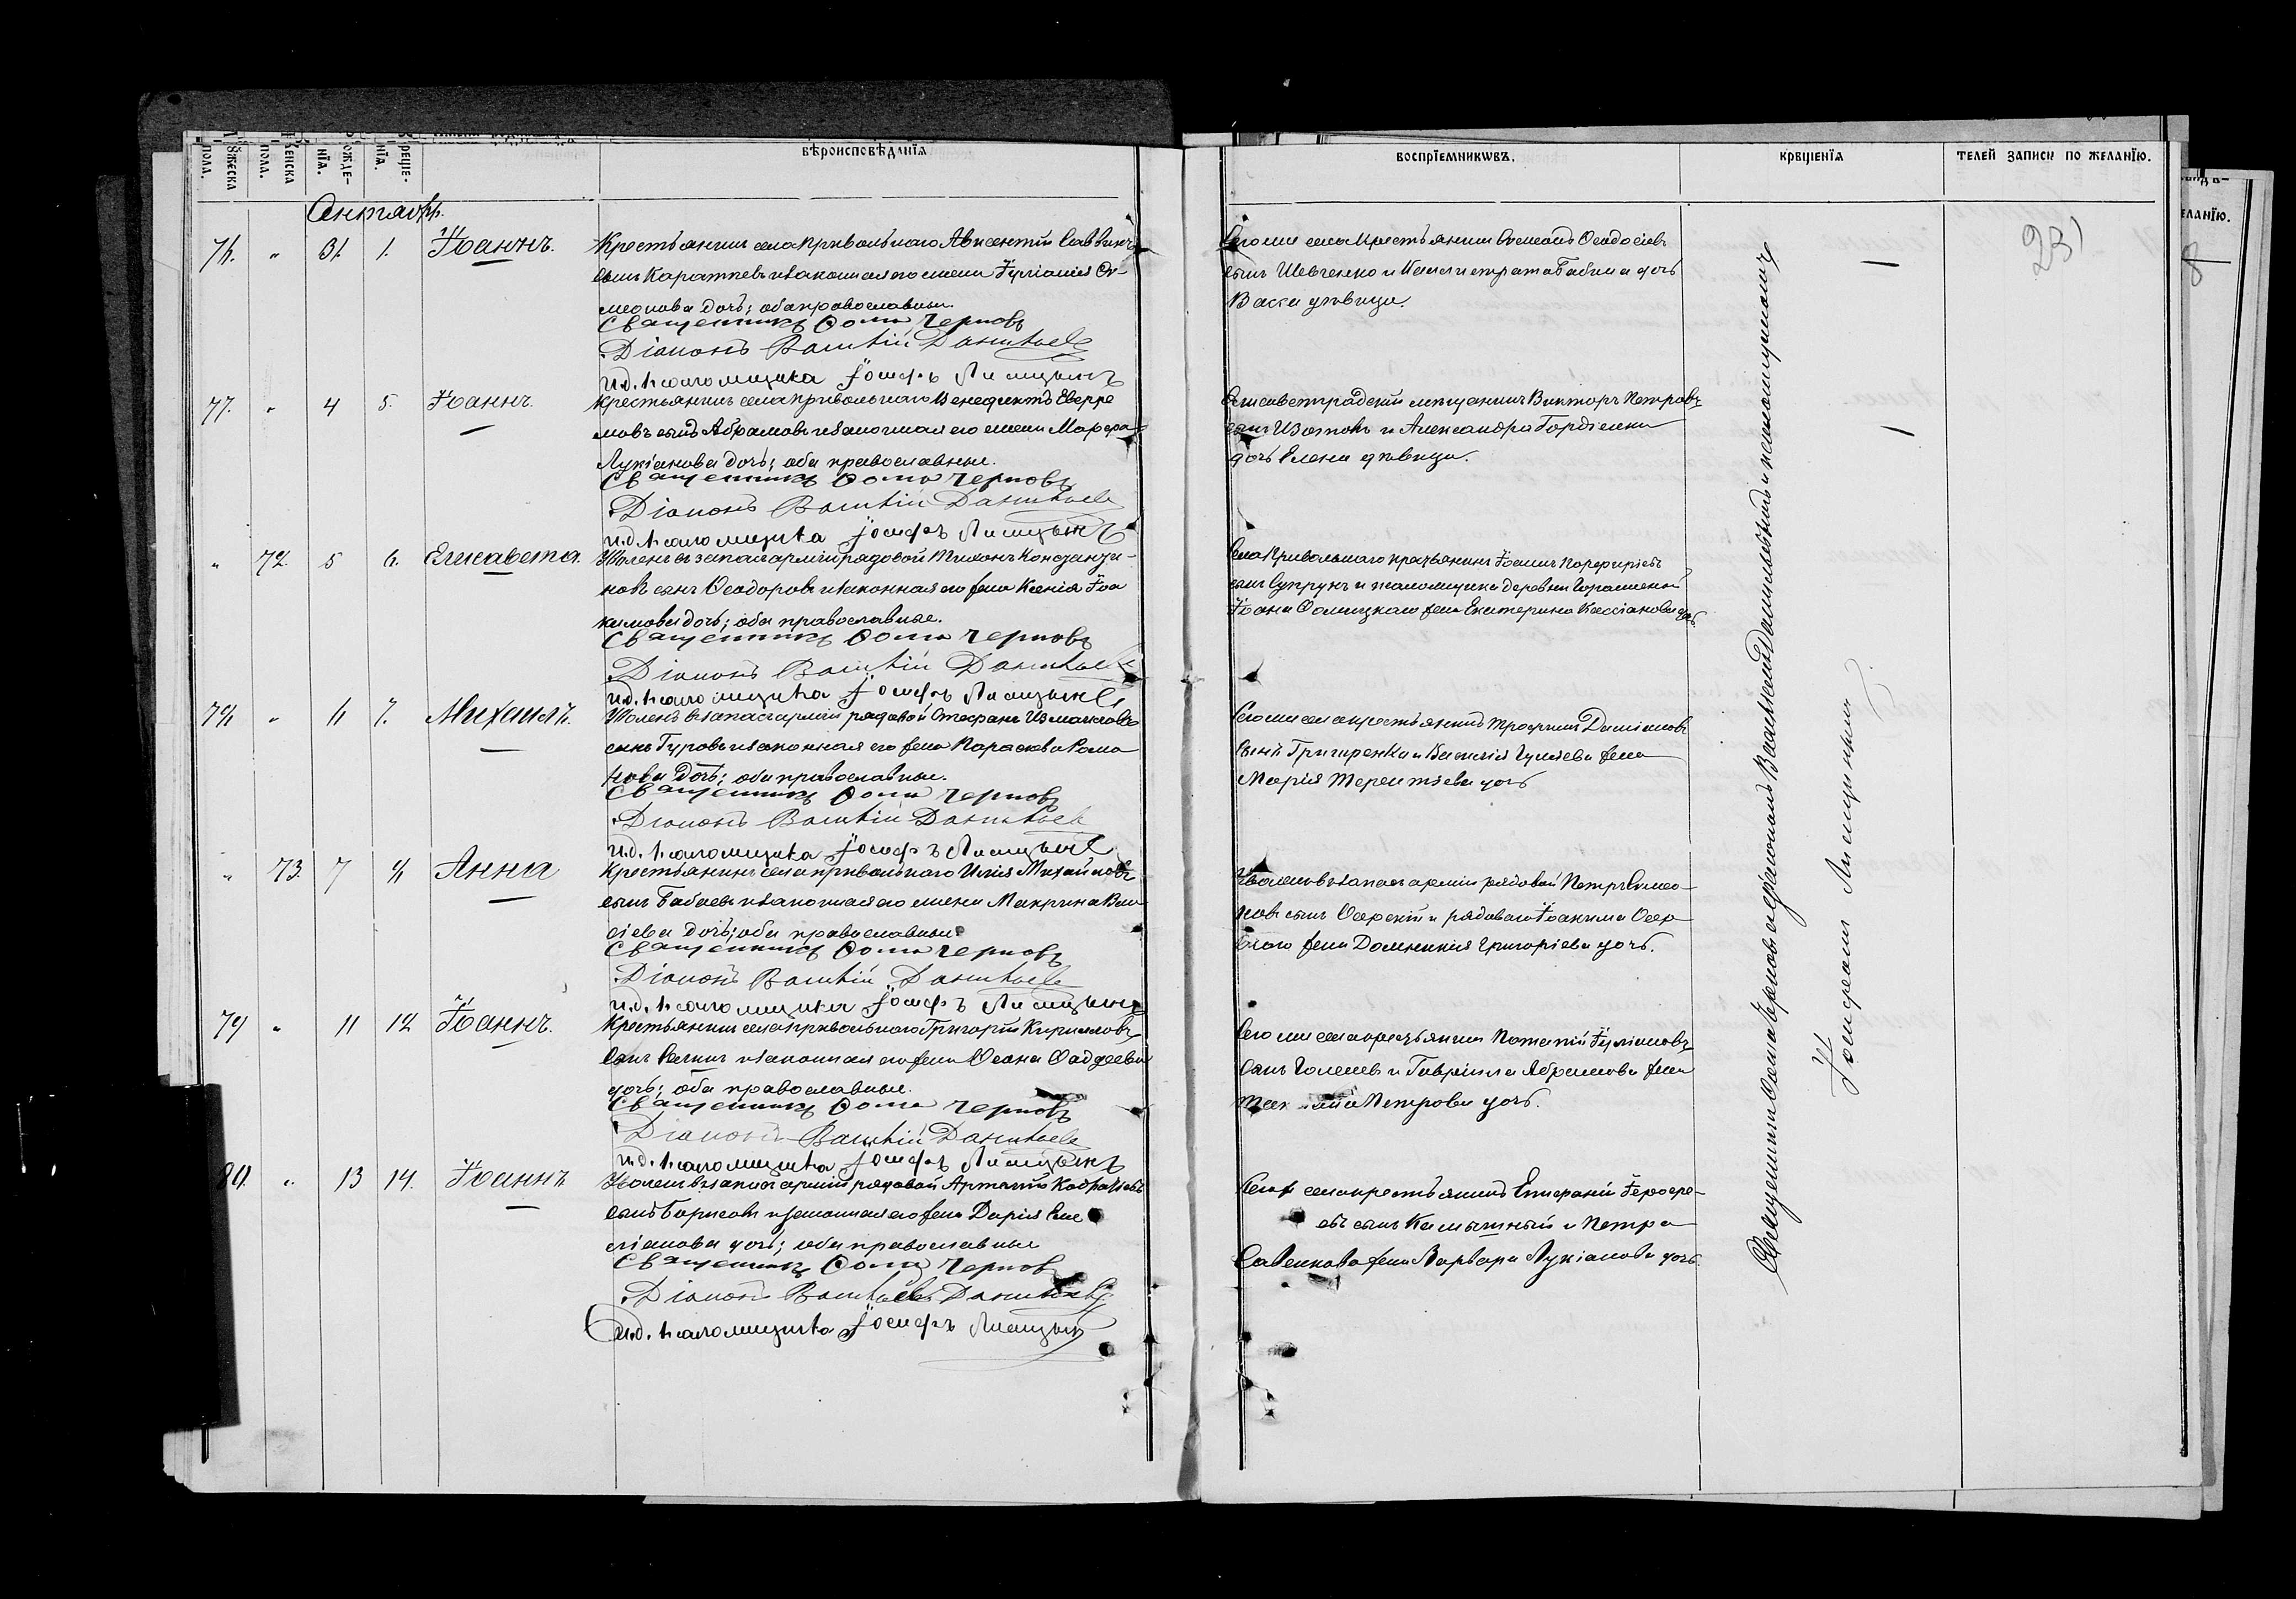 мꙋжеска пола.
женска пола.
рожденїѧ.
крещенїѧ.
вѣроисповѣданїѧ
воспрїемникѡвъ.
крещенїѧ
телей записи по желанїю.
Сентябрь.
76. " 31. 1. Іоаннъ. Крестьянинъ села Привольнаго Авксентій Саввинъ
сынъ Каратѣевъ и законная его жена Іуліанія Си-
меонова дочь; оба православные.
Священникъ Ѳома Черновъ
Діаконъ Василій Данильевъ
и.д. псаломщика Іосифъ Лисицынъ
Сего же села крестьянинъ Симеонъ Ѳеодосіевъ
сынъ Шевченко и Калистрата Бабича дочь
Васса дѣвица.
—
231
77. " 4 5. Іоаннъ. Крестьянинъ села Привольнаго Венедиктъ Евфре
мовъ сынъ Абрамовъ и законная его жена Марфа
Лукіанова дочь; оба православные.
Священникъ Ѳома Черновъ
Діаконъ Василій Данильевъ
и.д. псаломщика Іосифъ Лисицынъ
Елисаветградскій мѣщанинъ Викторъ Петровъ
сынъ Изотовъ и Александра Гордіенки
дочь Елена дѣвица.
—
" 72. 5 6. Елисавета. Уволенъ въ запасъ арміи рядовой Тихонъ Константи-
новъ сынъ Ѳеодоровъ и законная его жена Ксенія Іоа
кимова дочь; оба православные.
Священникъ Ѳома Черновъ
Діаконъ Василій Данильевъ
и.д. псаломщика Іосифъ Лисицынъ
Села Привольнаго крестьянинъ Іоаннъ Порфиріевъ
сынъ Супрунъ и псаломщика деревни
Іоана жена Екатерина Кассіанова дочь.
78 " 6 7. Михаилъ. Уволенъ въ запасъ арміи рядовой Стефанъ Измаиловъ
сынъ Гуровъ и законная его жена Параскева Рома
нова дочь; оба православные.
Священникъ Ѳома Черновъ
Діаконъ Василій Данильевъ
и.д. псаломщика Іосифъ Лисицынъ
Сего же села крестьянинъ Трофимъ Даміановъ
сынъ Григоренко и Василія Гуляева жена
Марія Терентіева дочь
" 73. 7 8 Анна Крестьянинъ села Привольнаго Илія Михайловъ
сынъ Бабаевъ и законная его жена Макрина Васи
сіева дочь; оба православные.
Священникъ Ѳома Черновъ
Діаконъ Василій Данильевъ
и.д. псаломщика Іосифъ Лисицынъ
Уволенъ въ запасъ арміи рядовой Петръ Симео-
новъ сынъ и рядоваго Іоакима
жена Домникія Григоріева дочь.
79 " 11 12 Іоаннъ. Крестьянинъ села Привольнаго Григорій Кирилловъ
сынъ и законная его жена Ѳеона Ѳаддеева
дочь; оба православные.
Священникъ Ѳома Черновъ
Діаконъ Василій Данильевъ
и.д. псаломщика Іосифъ Лисицынъ
Сего же села крестьянинъ Потапій Іуліановъ
сынъ и Гавріила Абрамова жена
Петрова дочь.
80. " 13 14. Іоаннъ Уволенъ въ запасъ арміи рядовой Артемій Кодратовъ
сынъ Борисовъ и законная его жена Дарія Еме
ліанова дочь; оба православные
Священникъ Ѳома Черновъ
Діаконъ Василій Данильевъ
и.д. псаломщика Іосифъ Лисицынъ
Сего села крестьянинъ Епифаній
сынъ Камышный и Петра
Савенкова жена Варвара Лукіанова дочь.
Священникъ Ѳома Черновъ съ діакономъ Василіемъ Данильевымъ и псаломщикомъ
Іосифомъ Лисицынымъ